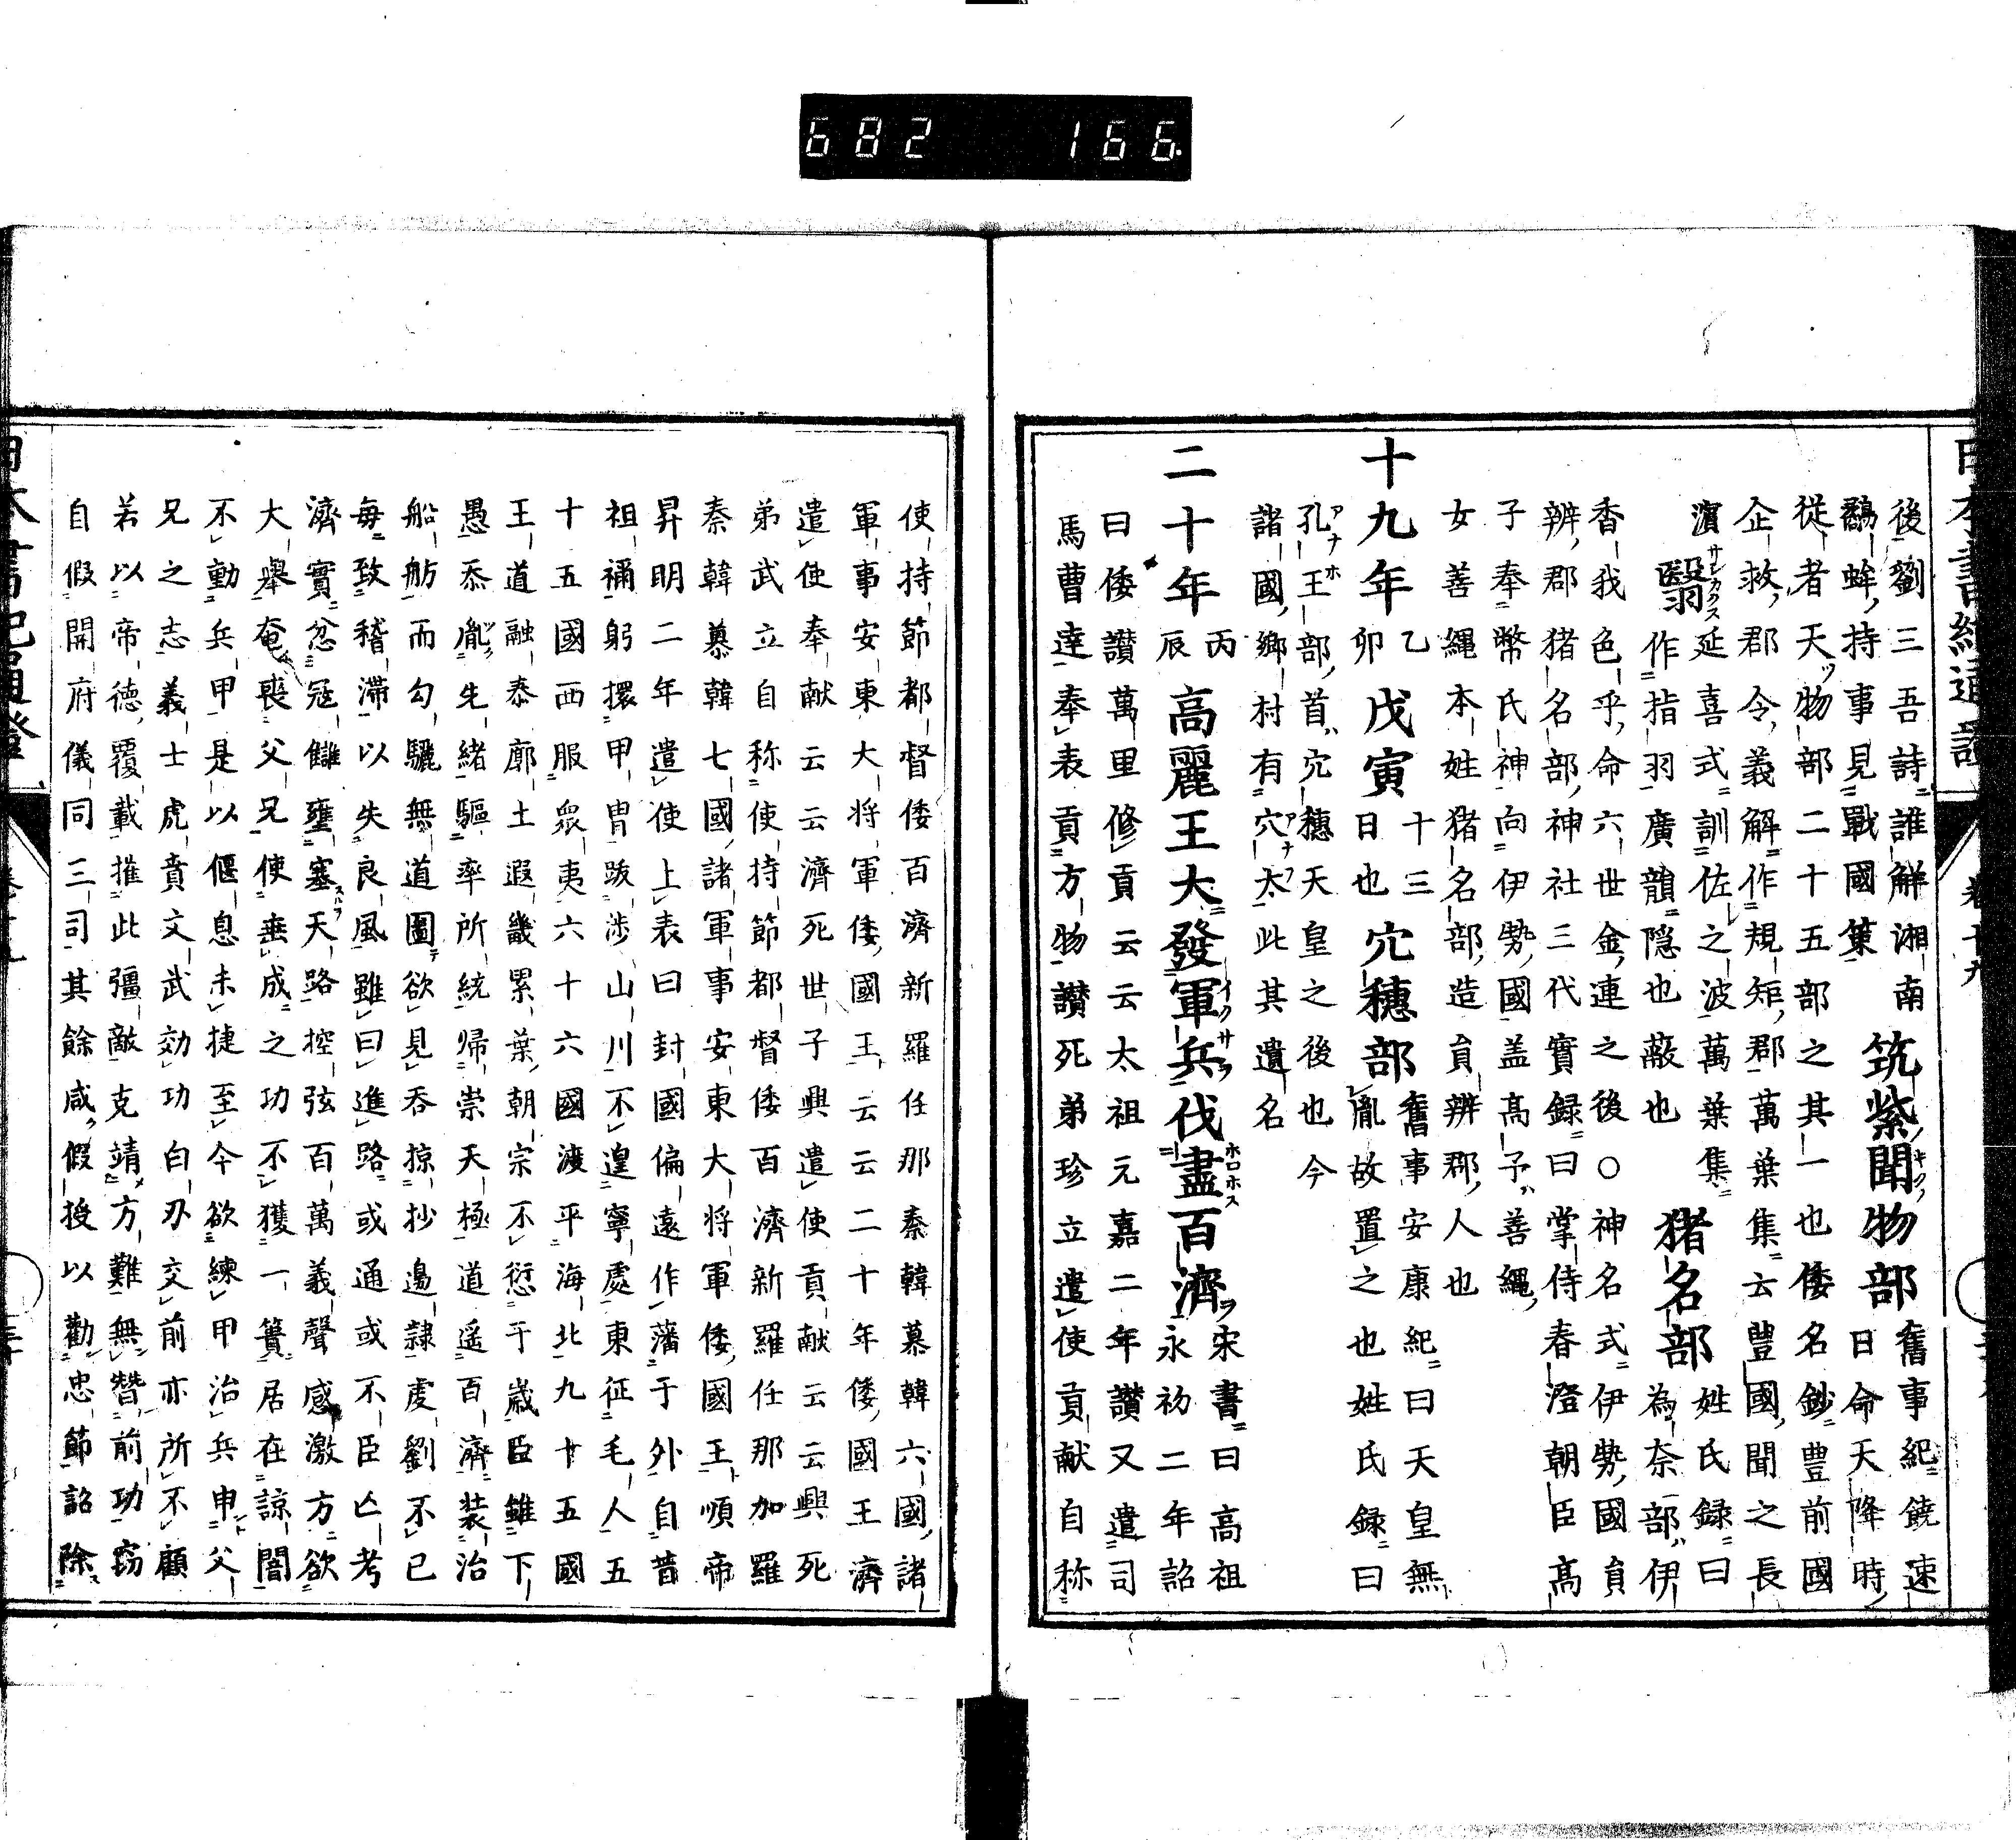 682 166
後劉三吾詩誰解湘南
鷸蚌持事見戰國策
筑紫聞物部
舊事紀饒速
日命天降時
從者天物部二十五部之其一也倭名鈔豊前國
企救郡令義解作規矩郡萬葉集云豐國聞之長
濱
翳
サシカクス
延喜式訓佐之波萬葉集
作指羽廣韻隠也蔽也
猪名部
姓氏録曰
為奈部伊
香我色乎命六世金連之後〇神名式伊勢國員
辨郡猪名部神社三代實録曰掌侍春澄朝臣高
子奉幣氏神向伊勢國盖高子ハ善縄
女善縄本姓猪名部造員辨郡人也
十九年
乙卯
戊寅
十三日也
穴穗部
舊事安康紀曰天皇無
胤故置之也姓氏録曰
孔王部首穴穗天皇之後也今
諸國鄉村有穴太此其遺名
二十年
丙辰
高麗王大發軍兵伐盡百濟
宋書曰高祖
永初二年詔
曰倭讃萬里修貢云云太祖元嘉二年讃又遣司
馬曹達奉表貢方物讃死弟珍立遣使貢献自称
使持節都督倭百濟新羅任那秦韓慕韓六國諸
軍事安東大将軍倭國王云云二十年倭國王濟
遣使奉献云云濟死世子興遣使貢献云云興死
弟武立自称使持節都督倭百濟新羅任那加羅
秦韓慕韓七國諸軍事安東大将軍倭國王順帝
昇明二年遣使上表曰封國偏遠作藩于外自昔
祖禰躬擐甲冑跋渉山川不遑寧處東征毛人五
十五國西服衆夷六十六國渡平海北九十五國
王道融泰廓土遐畿累葉朝宗不愆于歳臣雖下
愚忝胤先緒驅率所統帰崇天極道遥百濟装治
船舫而勾驪無道圖欲見呑掠抄邊隷虔劉不已
毎致稽滯以失良風雖曰進路或通或不臣亡考
濟實忿冦讎壅塞天路控弦百萬義聲感激方欲
大舉奄喪父兄使垂成之功不獲一簣居在諒闇
不動兵甲是以偃息未捷至今欲練甲治兵申父
兄之志義士虎賁文武効功白刃交前亦所不顧
若以帝德覆載摧此彊敵克靖方難無替前功窃
自假開府儀同三司其餘咸假授以勸忠節詔除